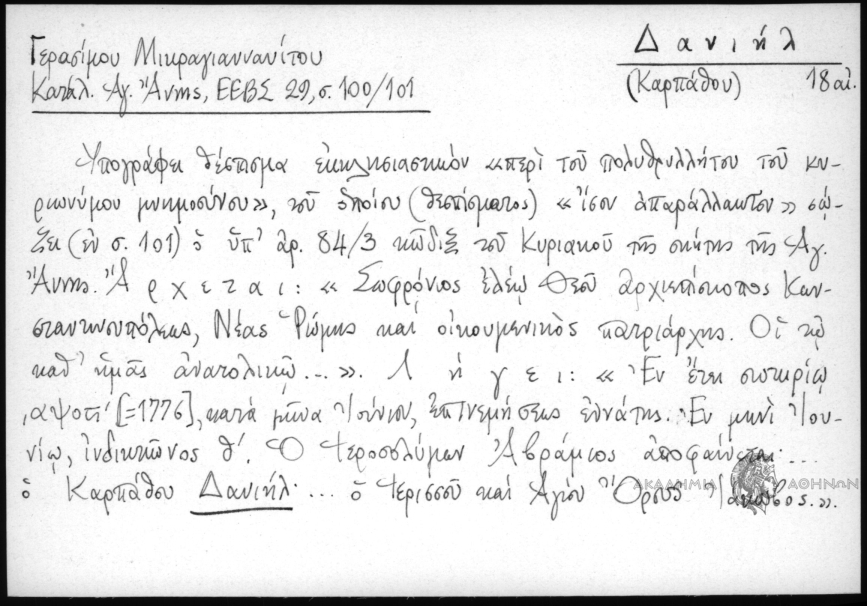 Γερασίμου Μικραγιαννανίτου
Δανιήλ
Κατάλ. Ἁγ. Ἄννης, ΕΕΒΣ 29, σ. 100/101
(Καρπάθου) 18 αἰ.
Ὑπογράφει θέσπισμα ἐκκλησιαστικὸν «περὶ τοῦ πολυθρυλλήτου τοῦ κυ-
ριωνύμου μνημοσύνου», τοῦ ὁποίου (θεσπίσματος) «ἴσον ἀπαράλλακτον» σῴ-
ζει (ἐν σ. 101) ὁ ὑπ' ἀρ. 84/3 κῶδιξ τοῦ Κυριακοῦ τῆς σκήτης τῆς Ἁγ.
Ἄννης. Ἄρχεται: «Σωφρόνιος ἐλέῳ Θεοῦ ἀρχιεπίσκοπος Κων-
σταντινουπόλεως, Νέας Ῥώμης καὶ οἰκουμενικὸς πατριάρχης. Οἱ τῷ
καθ' ἡμᾶς ἀνατολικῷ...». Λήγει: «Ἐν ἔτει σωτηρίῳ
͵αψοϛʹ [=1776], κατὰ μῆνα Ἰούνιον, ἐπινεμήσεως ἐννάτης. Ἐν μηνὶ Ἰου-
νίῳ, ἰνδικτιῶνος θ'. Ὁ Ἱεροσολύμων Ἀβράμιος ἀποφαίνεται...
ὁ Καρπάθου Δανιήλ... ὁ Ἱερισσοῦ καὶ Ἁγίου Ὄρους Ἰάκωβος.».
ΑΚΑΔΗΜΙΑ ΑΘΗΝΩΝ